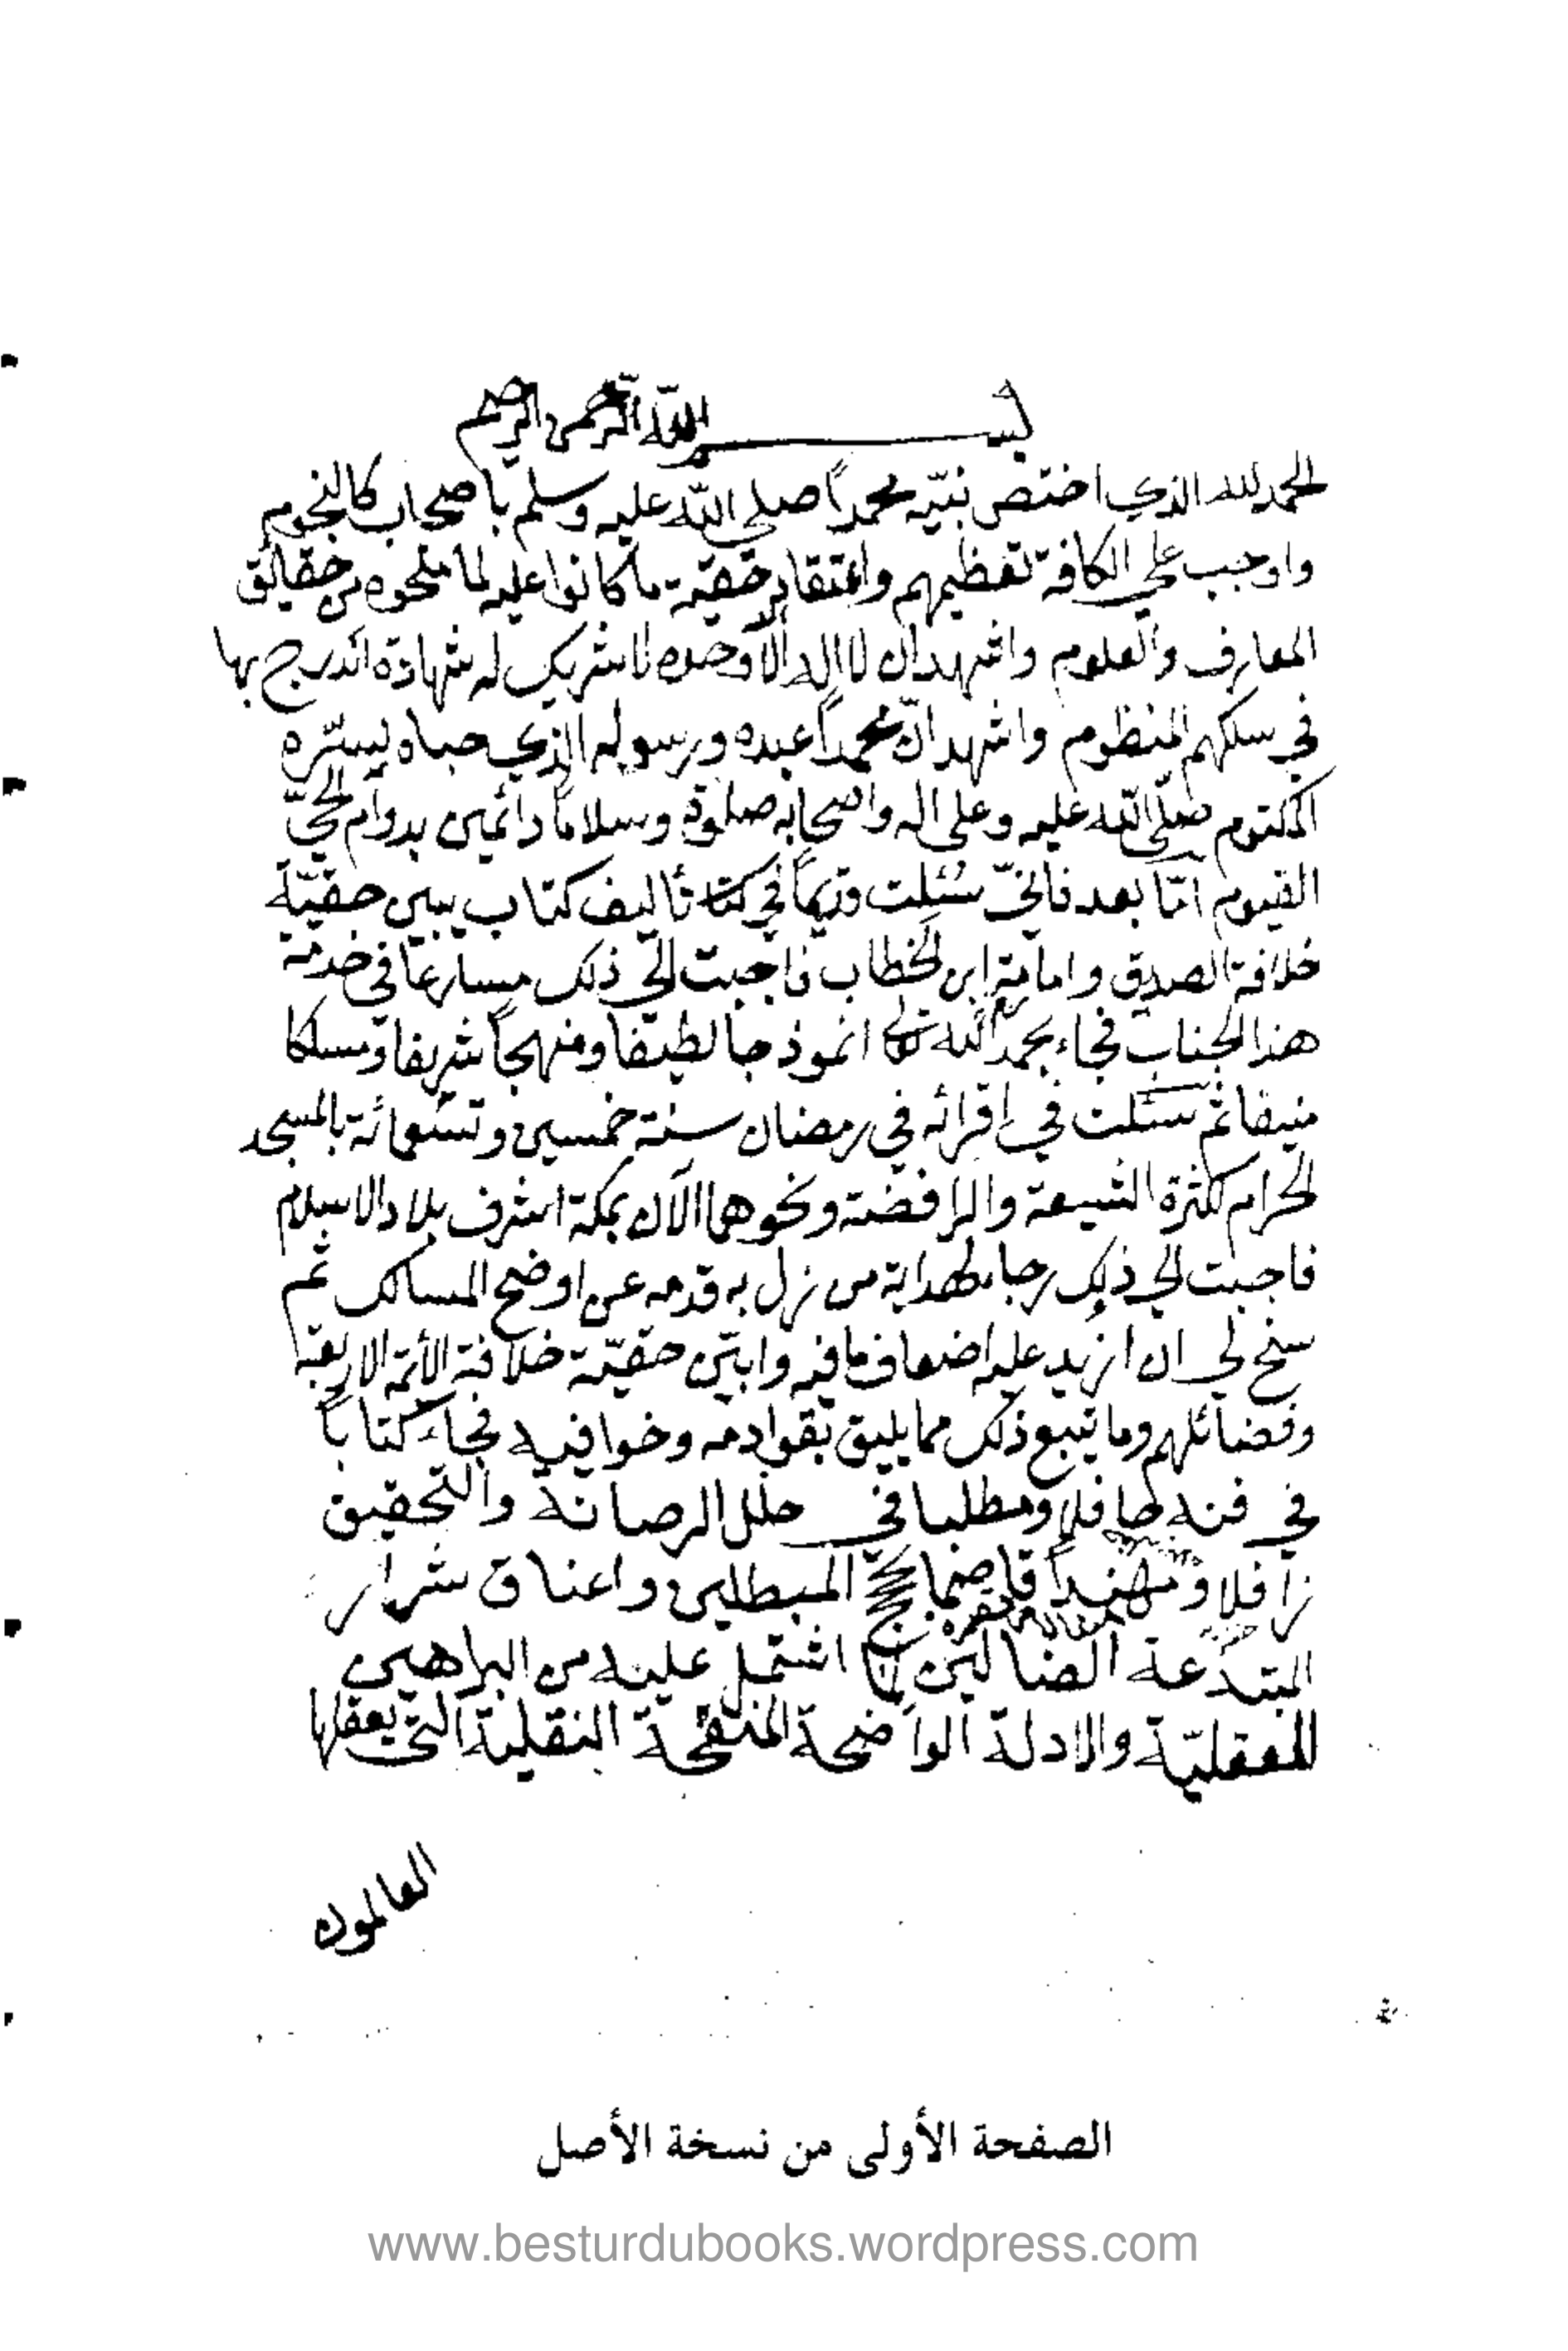 بسم الله الرحمن الرحيم
الحمد لله الذي اختص نبيّه محمداً صلى الله عليه وسلم باصحاب كالنجوم
واوجب على الكافة تعظيمهم واعتقاد حقية ما كانوا عليه لما منحوه من حقائق
المعارف والعلوم واشهد ان لا اله الا وحده لا شريك له شهادة اندرج بها
في سلكهم المنظوم واشهد انّ محمداً عبده ورسوله الذي حباه بسرّه
المكتوم صلّى الله عليه وعلى اله واصحابه صلوة وسلاماً دائمين بدوام الحيّ
القيوم امّا بعد فانيّ سئلت قديماً في تأليف كتاب يبين حقيّة
خلافة الصديق وامامة ابن الخطاب فاجبت الى ذلك مسارعا في خدمة
هذا الجناب فجاء بحمد الله انموذجا لطيفا ومنهجاً شريفا ومسلكا
منيفا ثم سئلت في اقرائه في رمضان سنة خمسين وتسعمائة بالمسجد
الحرام لكثرة الشيعة والرافضة ونحوها الآن بمكة اشرف بلاد الاسلام
فاجبت الى ذلك رجاء لهداية من زل به قدمه عن اوضح المسالك ثم
سنح لي ان ازيد عليه اضعاف ما فيه وابيّن حقيّة خلافة الأئمة الاربعة
وفضائلهم وما يتبع ذلك مما يليق بقوادمه وخوافيه فجاء كتاباً
في فنه حافلا ومطلبا في حلل الرصانة والتحقيق
رافلا ومهنداً قاصما المبطلين واعناق شرار
المبتدعة الضالين لما اشتمل عليه من البراهين
العقليّة والادلة الواضحة المنقحة النقلية التي يعقلها
العالمون
الصفحة الأولى من نسخة الأصل
www.besturdubooks.wordpress.com